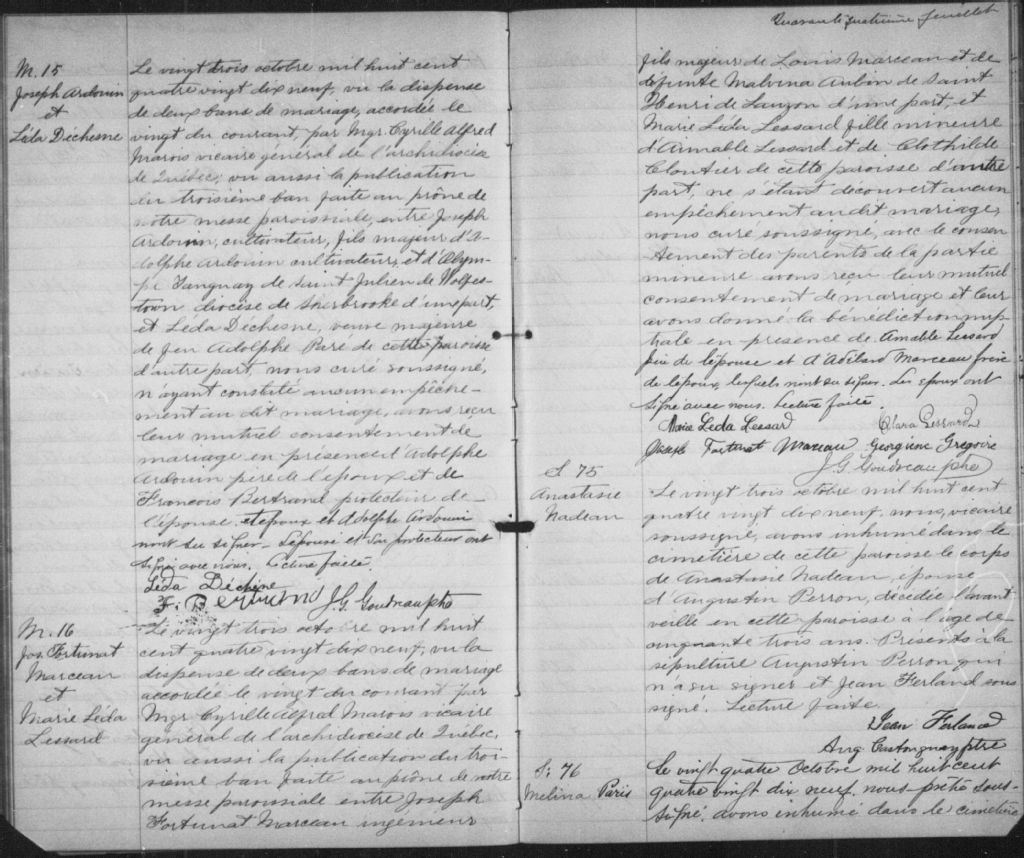 M. 15
Joseph Ardouin
et
Léda Dechesne
Le vingt trois octobre mil huit cent
quatre vingt dix neuf, vu la dispense
de deux bans de mariage, accordée le
vingt du courant, par Mgr. Cyrille Alfred
Marois vicaire général de l'archidiocèse
de Québec; vu aussi la publication
du troisième ban faite au prône de
notre messe paroissiale, entre Joseph
Ardouin, cultivateur, fils majeur d'A-
dolphe Ardouin cultivateur, et d'Olym-
pe Tanguay de Saint Julien de Wolfes-
town diocèse de Sherbrooke d'une part,
et Léda Déchesne, veuve majeure
de feu Adolphe Paré de cette paroisse
d'autre part, nous curé soussigné,
n'ayant constaté aucun empêche-
ment au dit mariage, avons reçu
leur mutuel consentement de
mariage en présence d'Adolphe
Ardouin père de l'époux et de
Francois Bertrand protecteur de
l'épouse. L'époux et Adolphe Ardouin
n'ont su signer. L'épouse et son protecteur ont
signé avec nous. Lecture faite.
Léda Déchène
F. Bertrand J. G. Goudreau ptre
M. 16
Jos. Fortunat
Marceau
et
Marie Léda
Lessard
Le vingt trois octobre mil huit
cent quatre vingt dix neuf, vu la
dispense de deux bans de mariage
accordée le vingt du courant par
Mgr Cyrille Alfred Marois vicaire
général de l'archidiocèse de Québec,
vu aussi la publication du troi-
sième ban faite au prône de notre
messe paroissiale entre Joseph
Fortunat Marceau ingénieur
Quarante quatrième feuillet
fils majeur de Louis Marceau et de
défunte Malvina Aubin de Saint
Henri de Lauzon d'une part, et
Marie Léda Lessard fille mineure
d'Amable Lessard et de Clothilde
Cloutier de cette paroisse d'autre
part, ne s'étant découvert aucun
empêchement au dit mariage,
nous curé soussigné, avec le consen
tement des parents de la partie
mineure avons reçu leur mutuel
consentement de mariage et leur
avons donné la bénédiction nup
tiale en présence de Amable Lessard
père de l'épouse et d'Adélard Marceau frère
de l'époux, lesquels n'ont su signer. Les époux ont
signé avec nous. Lecture faite.
Marie Leda Lessard Clara Lessard
Joseph Fortunat Marceau Georgiene Gregoire
J. G. Goudreau ptre
S 75
Anastasie
Nadeau
Le vingt trois octobre mil huit cent
quatre vingt dix neuf, nous, vicaire
soussigné, avons inhumé dans le
cimetière de cette paroisse le corps
de Anastasie Nadeau, épouse
d'Augustin Perron, décédée l'avant
veille en cette paroisse à l'age de
cinquante trois ans. Présents à la
sépulture Augustin Perron qui
n'a su signer et Jean Ferland sous
signé. Lecture faite.
Jean Ferland
Aug. Castonguay ptre
S. 76
Melina Paris
Le vingt quatre Octobre mil huit cent
quatre vingt dix neuf, nous prêtre sous-
signé, avons inhumé dans le cimetière